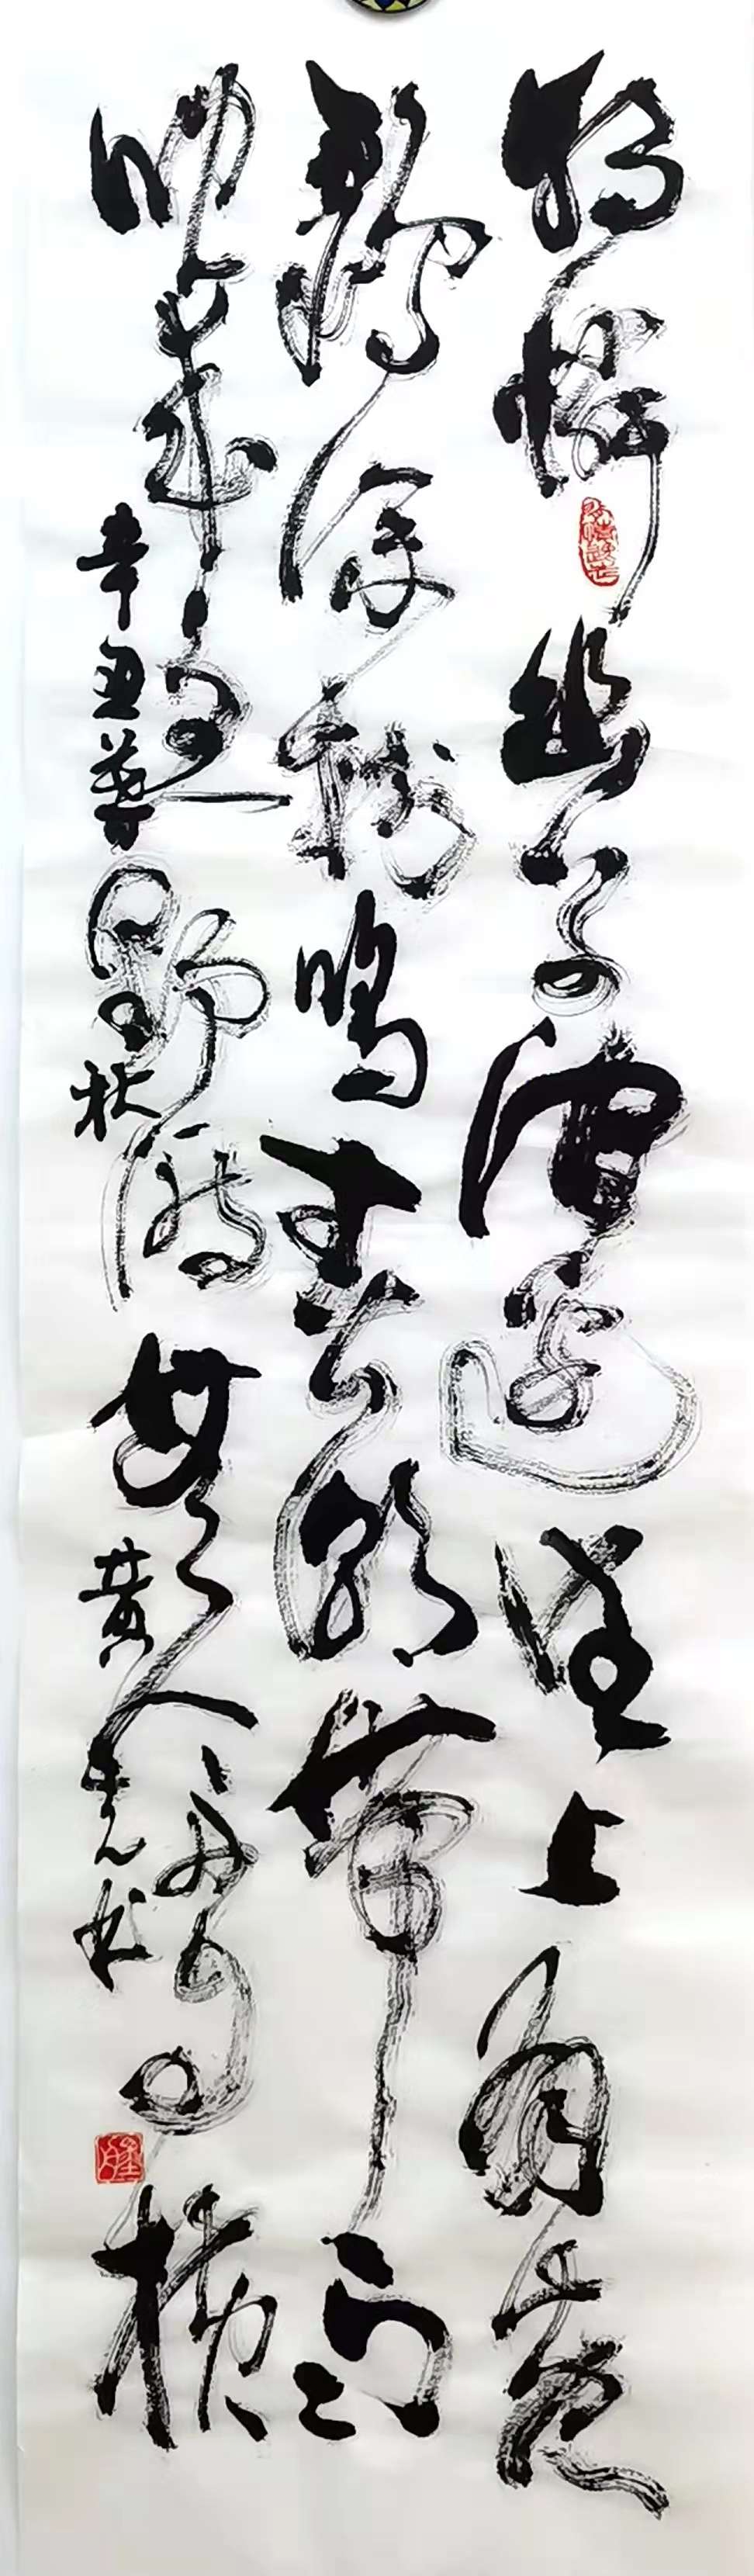 独憐幽草澗邊生上有黄
鸝深樹鳴春潮帶雨
晚來急野渡無人舟自横
辛丑暮秋黄书